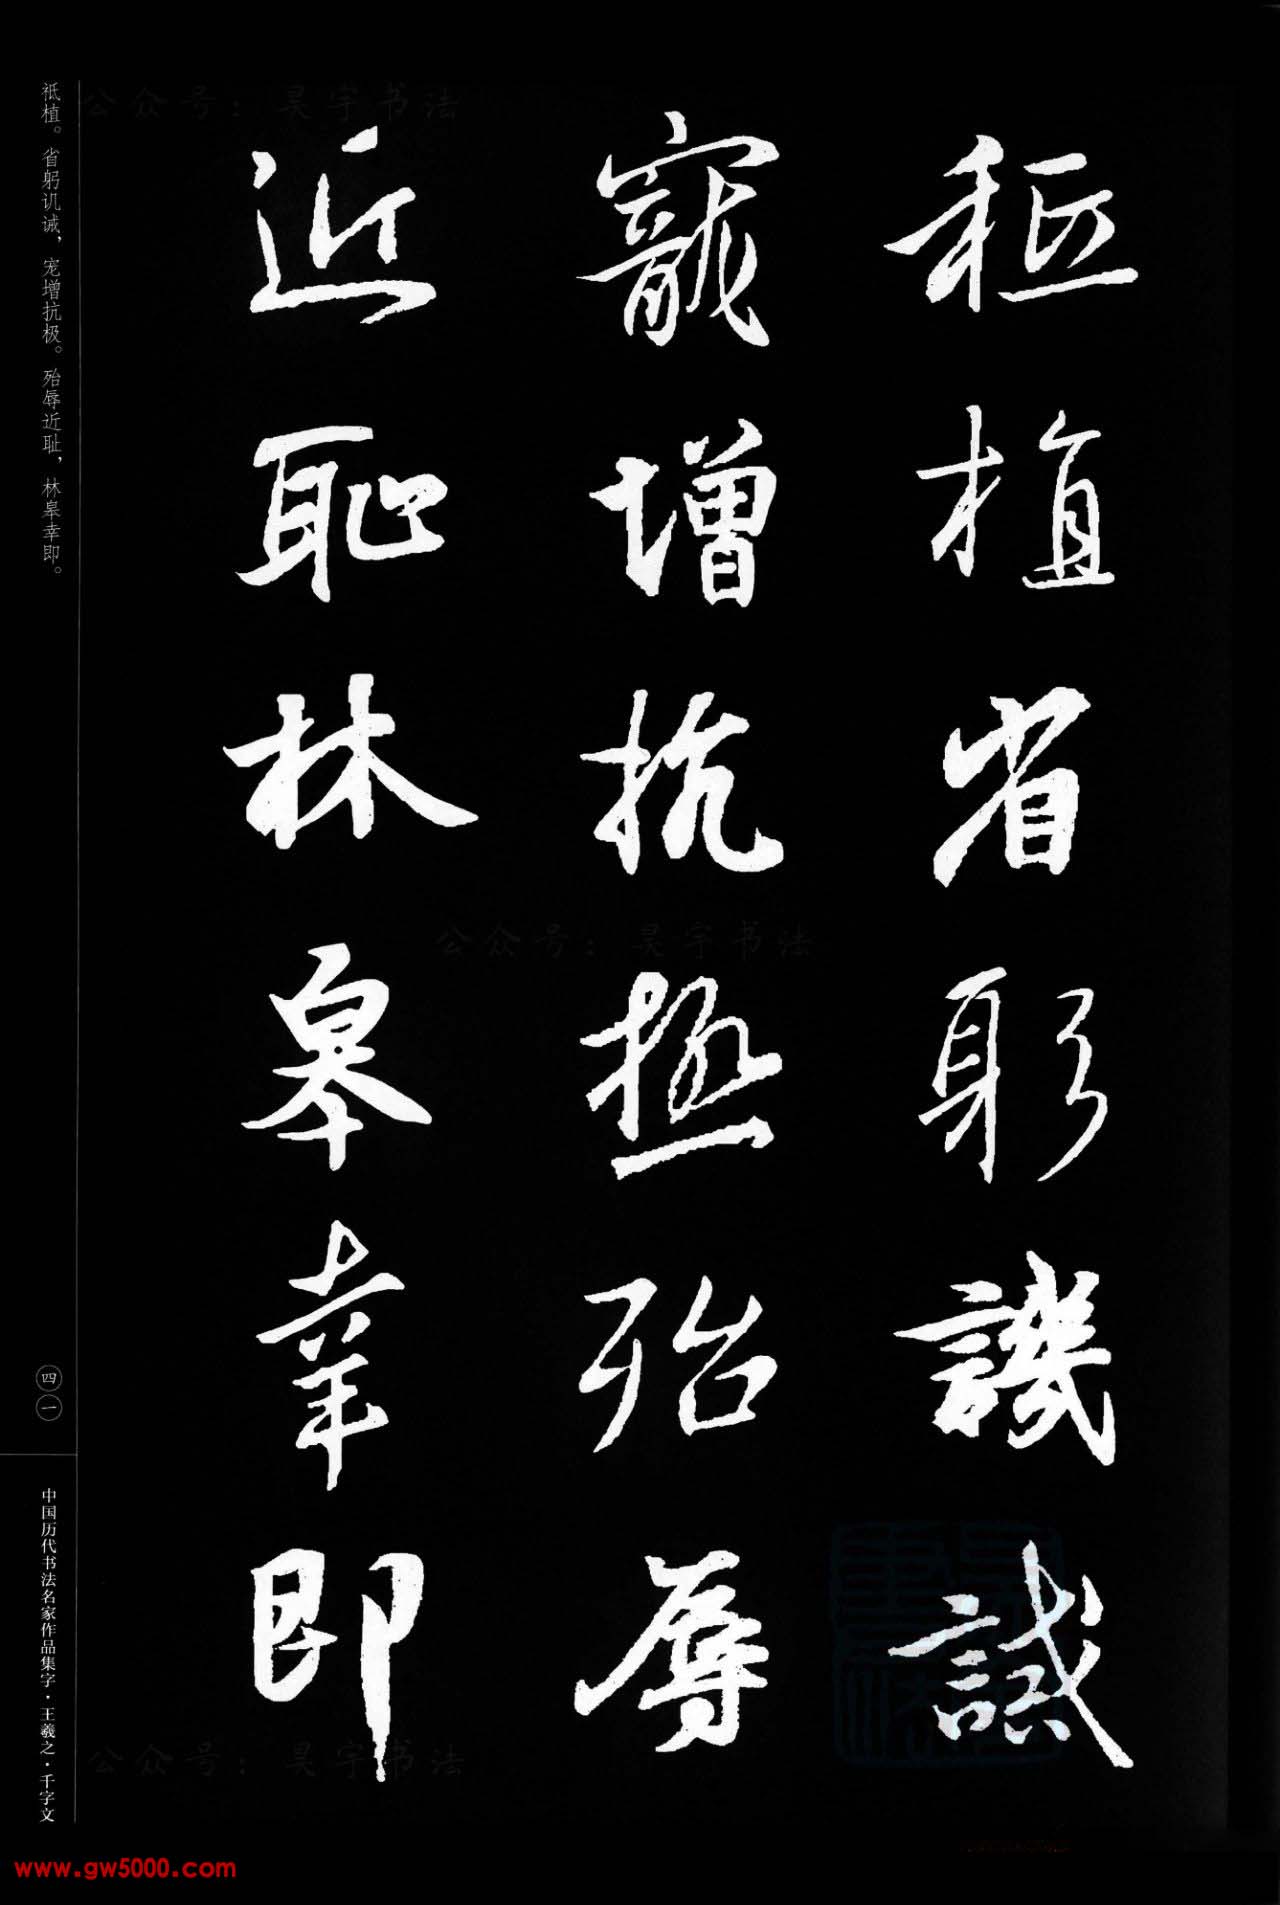 秖植省躬譏誡
寵增抗極殆辱
近恥林皋幸即
祗植。省躬讥诫，宠增抗极。殆辱近耻，林皋幸即。
四一
中国历代书法名家作品集字·王羲之·千字文
公众号：昊宇书法
公众号：昊宇书法
公众号：昊宇书法
www.gw5000.com